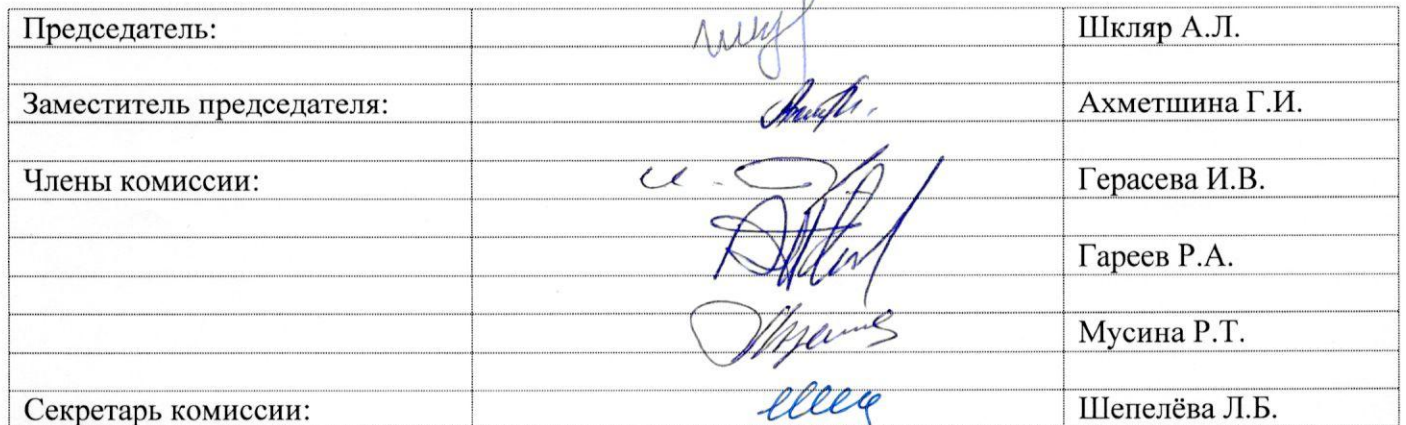 Председатель: Шкляр А.Л.
Заместитель председателя: Ахметшина Г.И.
Члены комиссии: Герасева И.В.
Гареев Р.А.
Мусина Р.Т.
Секретарь комиссии: Шепелёва Л.Б.